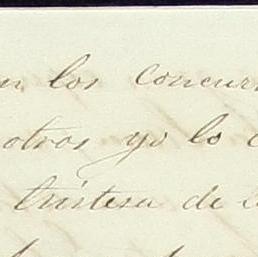 n los concur
otros yo lo
tristeza de